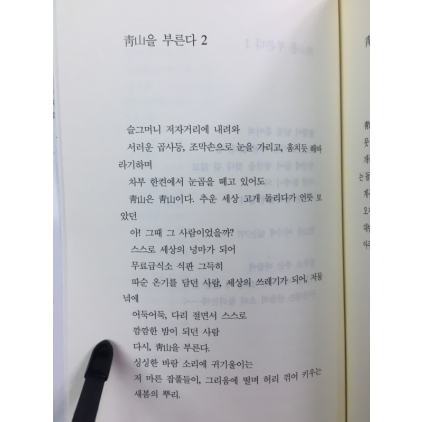 靑山을 부른다 2
슬그머니 저자거리에 내려와
서러운 곱사등, 조막손으로 눈을 가리고, 훔치듯 해바
라기하며
차부 한켠에서 눈곱을 떼고 있어도
靑山은 靑山이다. 추운 세상 고개 돌리다가 언뜻 보
았던
아! 그때 그 사람이었을까?
스스로 세상의 넝마가 되어
무료급식소 식판 그득히
따순 온기를 담던 사람, 세상의 쓰레기가 되어, 저물
녘에
어둑어둑, 다리 절면서 스스로
깜깜한 밤이 되던 사람
다시, 靑山을 부른다.
싱싱한 바람 소리에 귀기울이는
저 마른 잡풀들이, 그리움에 떨며 허리 꺾어 키우는
새봄의 뿌리.